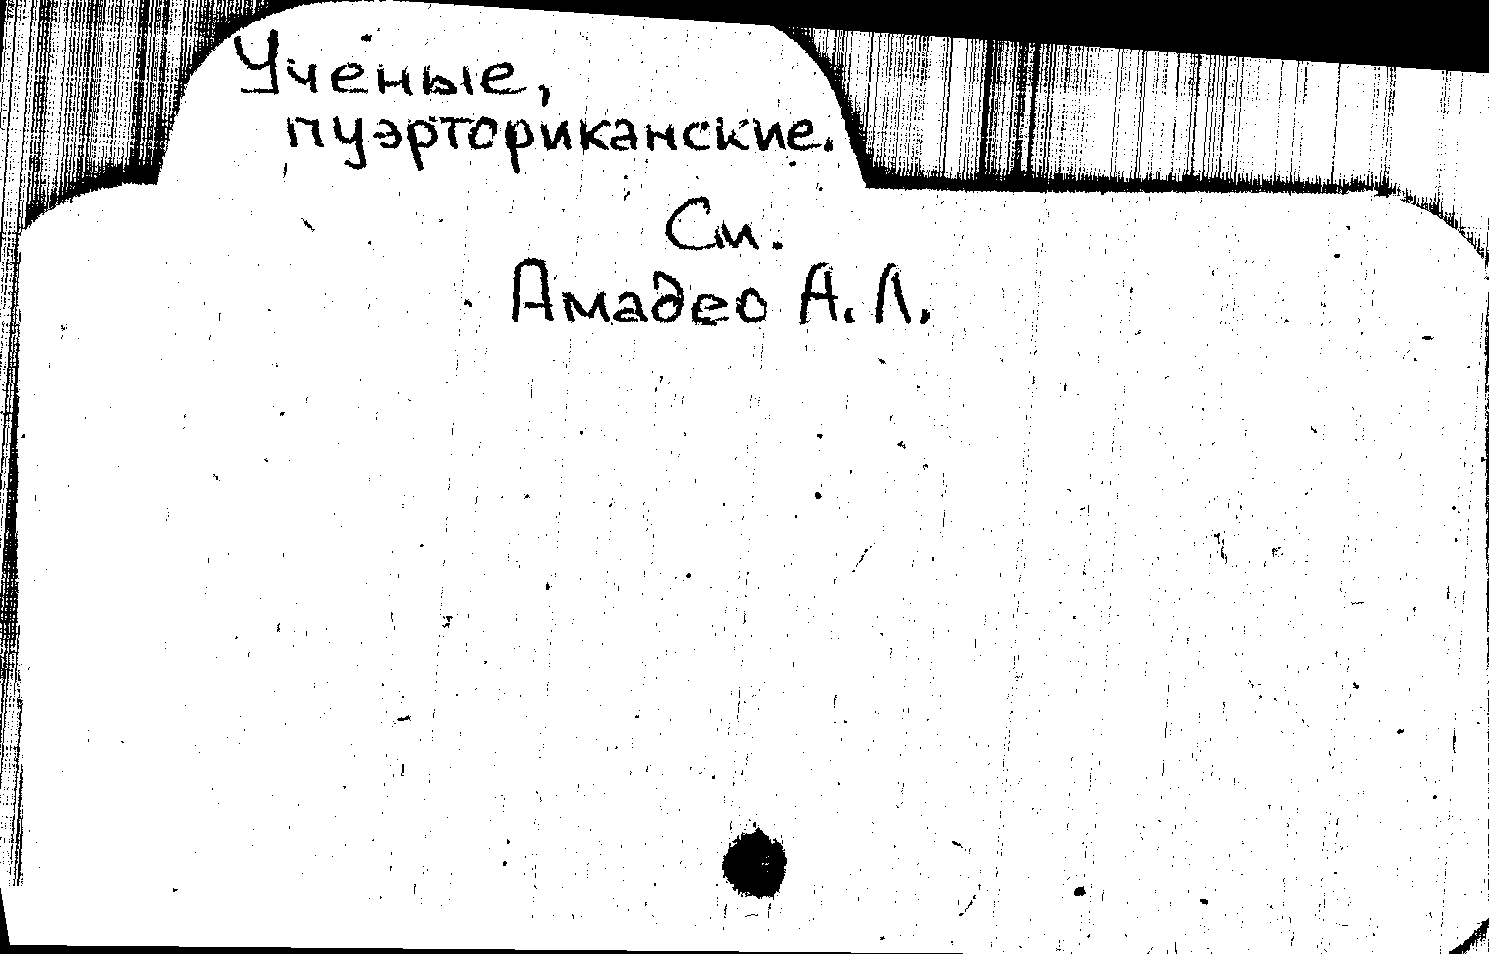 Ученые,
пуэрториканские.
См.
Амадео А. Л.